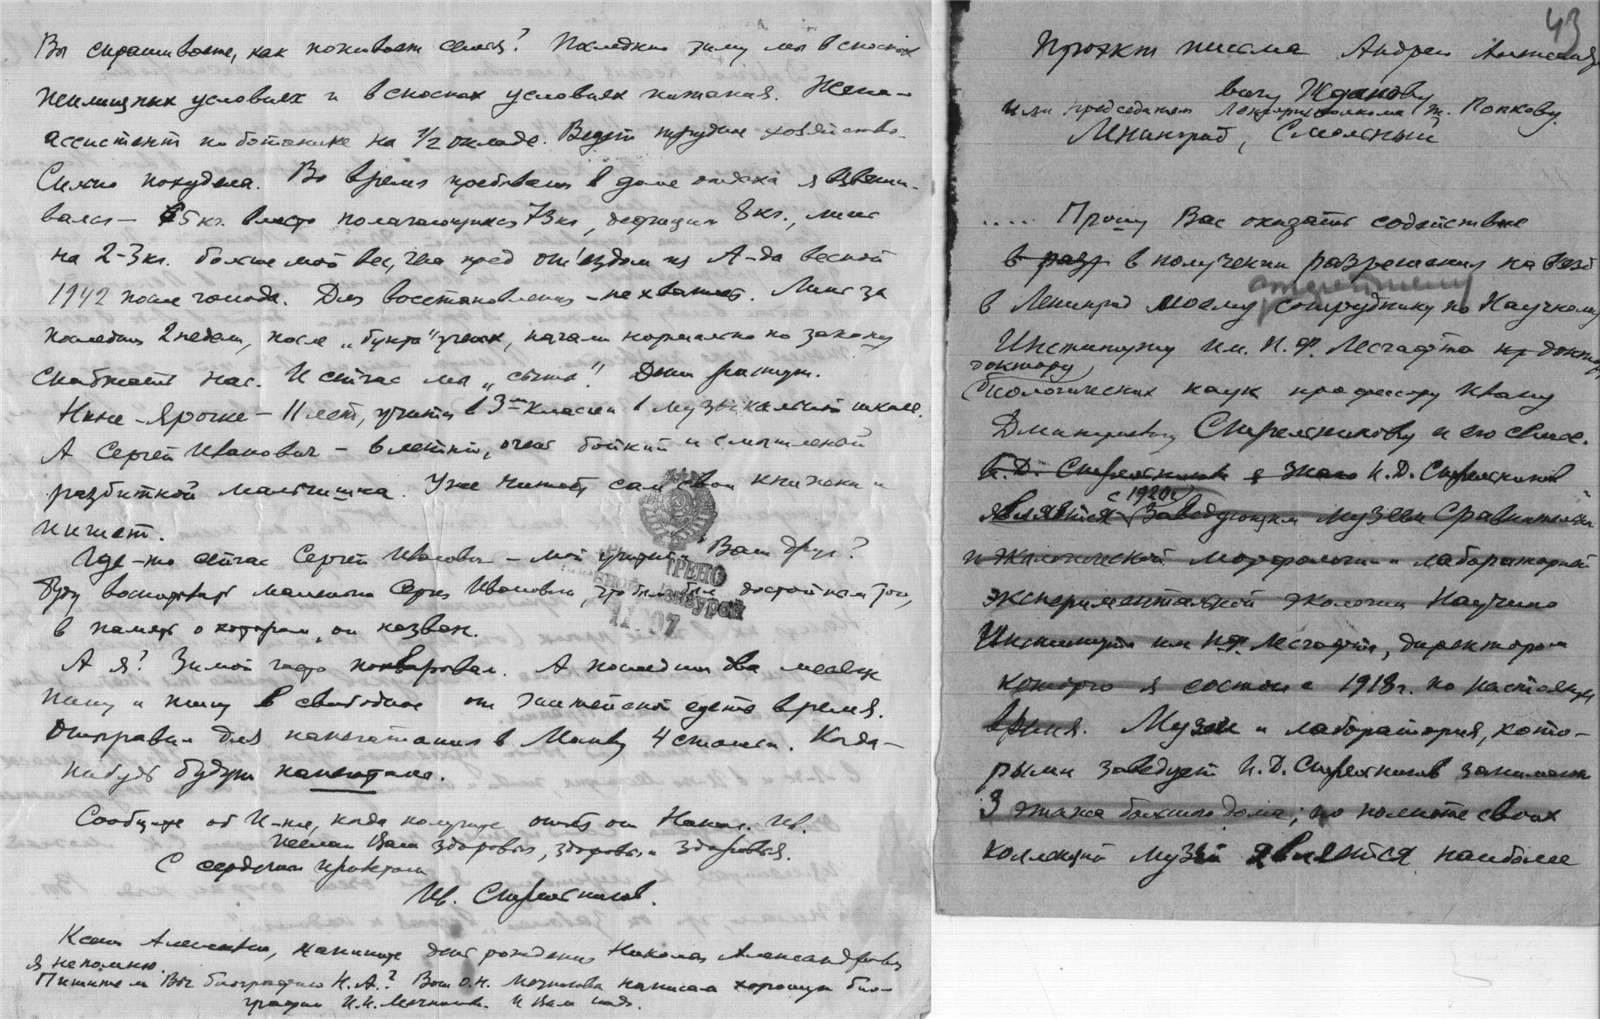 Вы спрашиваете, как поживает семья? Последнюю зиму мы в сносных
жилищных условиях и в сносных условиях питания. Жена —
ассистент по ботанике на 1/2 окладе. Ведет трудное хозяйство.
Сильно похудела. Во время пребывания в доме отдыха я взвеши-
вался — 65 кг. вместо полагающихся 73 кг, дефицит 8 кг., лишь
на 2-3 кг. больше мой вес, чем пред от'ездом из Л-да весной
1942 после голода. Для восстановления — не хватает. Лишь за
последние 2 недели, после „бунта" ученых, начали нормально по закону
снабжать нас. И сейчас мы „сыты". Дети растут.
Нине — Ярошке — 11 лет, учится в 3-м классе и в музыкальной школе.
А Сергей Иванович — 6 летний, очень бойкий и смышленой
разбитной мальчишка. Уже читает сам свои книжки и
пишет.
Где-то сейчас Сергей Иванович — мой учитель и Ваш друг?
Буду воспитывать маленького Сергея Ивановича, чтобы был достойным того,
в память о котором, он назван.
А я? Зимой часто похварывал. А последние два месяца
пишу и пишу в свободное от житейской суеты время.
Отправил для напечатания в Москву 4 статьи. Когда-
нибудь будут напечатаны.
Сообщите об И-те, когда получите ответ от
Желаю Вам здоровья, здоровья и здоровья.
С сердечным приветом
Ив. Стрельников.
Ксения Алексеевна, напишите день рождения Николая Александровича
я не помню.
Пишите ли Вы биографию Н.А.? Вот О.Н. Мечникова написала хорошую био-
графию И.И. Мечникова. И Вам надо.
43
Проэкт письма Андрею Александро
вичу Жданову
или председателю Ленгорисполкома т. Попкову.
Ленинград, Смольный
..... Прошу Вас оказать содействие
в раз в получении разрешения на в'езд
в Ленинград моему сотруднику по Научному
Институту им. П.Ф. Лесгафта
доктору
биологических наук профессору Ивану
Дмитриевичу Стрельникову и его семье.
И.Д. Стрельников я знаю И.Д. Стрельников
с 1920 г.
является заведующим музеем сравнительной
и экологической морфологии и лабораторией
экспериментальной экологии Научного
Института им. П.Ф. Лесгафта, директором
которого я состою с 1918 г. по настоящее
время. Музей и лаборатория, кото-
рыми заведует И.Д. Стрельников занимают
3 этажа большого дома; по полноте своих
коллекций музей является наиболее